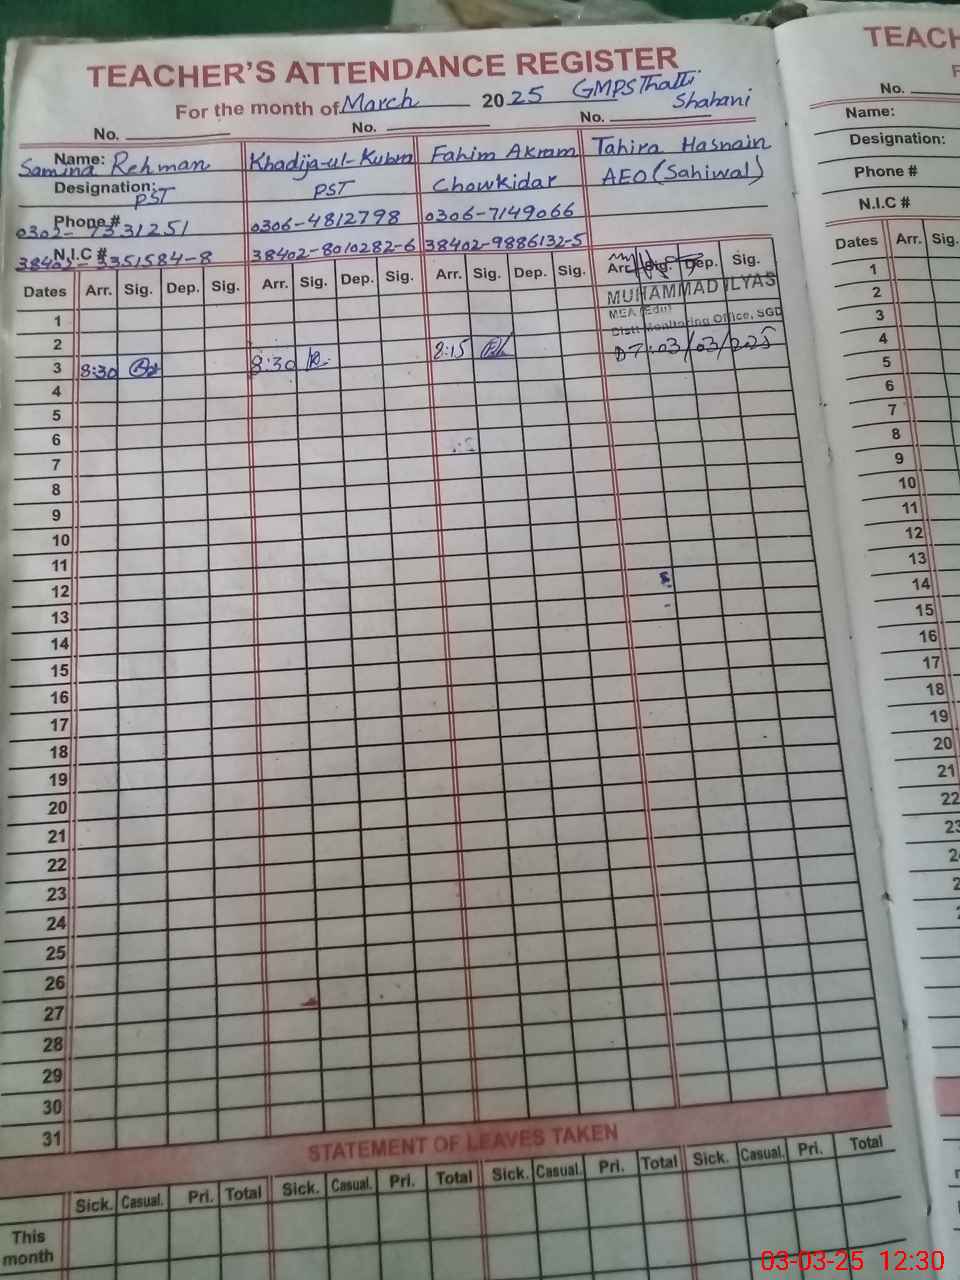 TEACHER'S ATTENDANCE REGISTER
For the month of March 2025 GMPS Thatti Shahani
No. No. No.
Name: Samina Rehman Khadija-ul-Kubra Fahim Akram Tahira Hasnain
Designation: PST PST Chowkidar AEO (Sahiwal)
Phone # 0302- 7331251 0306-4812798 0306-7149066
N.I.C # 38402- 3351584-8 38402-8010282-6 38402-9886132-5
Dates Arr. Sig. Dep. Sig. Arr. Sig. Dep. Sig. Arr. Sig. Dep. Sig. Arr. Sig. Dep. Sig.
MUHAMMAD ILYAS
MEA (Edu)
Distt Monitoring Office, SGD
1
2
3 8:30 8:30 8:15
4
5
6
7
8
9
10
11
12
13
14
15
16
17
18
19
20
21
22
23
24
25
26
27
28
29
30
31
STATEMENT OF LEAVES TAKEN
Sick. Casual. Pri. Total Sick. Casual. Pri. Total Sick. Casual. Pri. Total Sick. Casual. Pri. Total
This month
TEACH
No.
Name:
Designation:
Phone #
N.I.C #
Dates Arr. Sig.
1
2
3
4
5
6
7
8
9
10
11
12
13
14
15
16
17
18
19
20
21
22
23
03-03-25 12:30